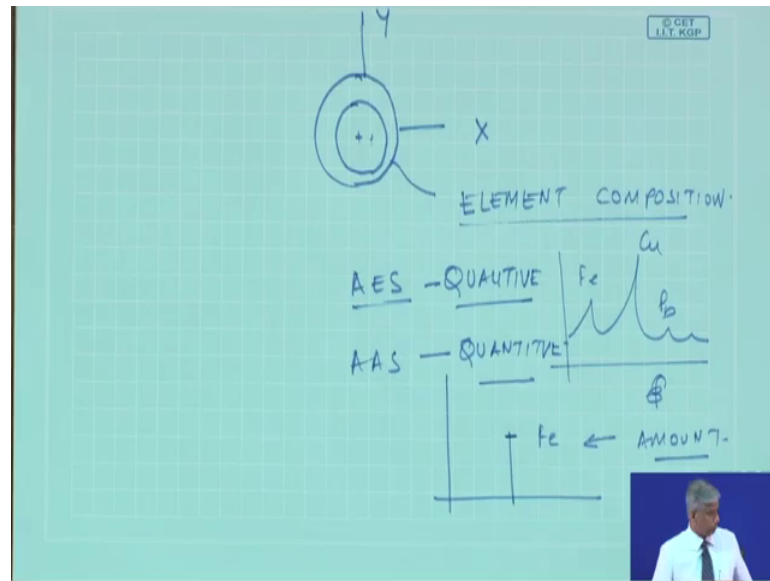 © CET
I.I.T. KGP
Y
X
ELEMENT COMPOSITION.
Cu
Fe
Pb
AES - QUALITIVE
AAS - QUANTITVE
Fe ← AMOUNT.